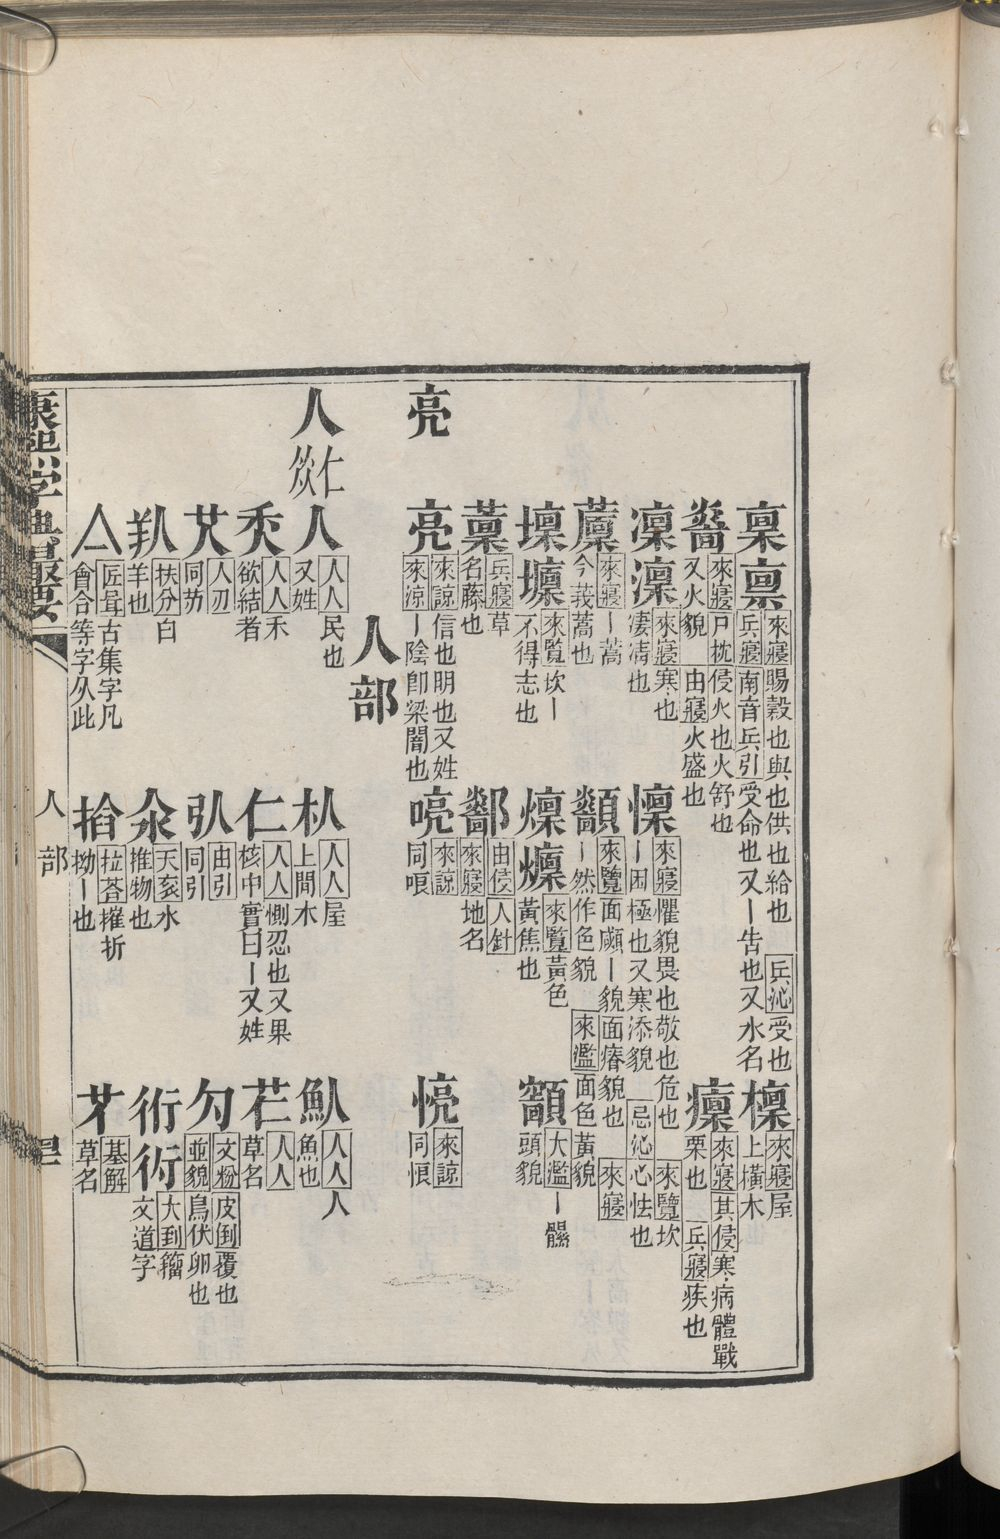 稟禀 來寢賜穀也與也供也給也 兵沁受也 兵寢南音兵引受命也又丨吿也又水名
檁 來寢屋上橫木
來寢戸枕侵火也火舒也又火貌 由寢火盛也
癛 來寢其侵寒病體戰栗也 兵寢疾也
凜凛 來寢寒也淒清也
懍 來寢懼貌畏也敬也危也 來覽坎丨困極也又寒添貌 忌沁心怯也
來寢丨蒿今莪蒿也
來覽面顑丨貌面瘠貌也 來寢丨然作色貌 來濫面色黃貌
壈 來覽坎丨不得志也
燣 來覽黃色黃焦也
大濫丨頭貌
兵寢草名藤也
由侵人針來寢地名
亮
亮 來諒信也明也又姓來涼丨陰卽梁闇也
喨 來諒同哴
悢 來諒同悢
人部
人 仁
人 人人民也又姓
朲 人人屋上間木
魜 人人人魚也
人人禾欲結者
仁 人人惻忍也又果核中實曰丨又姓
芢 人人草名
艾 人刃同艻
引 由引同引
勽 文粉皮倒覆也並貌鳥伏卵也
扶分白羊也
汆 天亥水推物也
衏 大到籀文道字
亼 匠咠古集字凡會合等字从此
拾 拉荅摧折拗丨也
才 基解草名
康熙字典撮要
人部